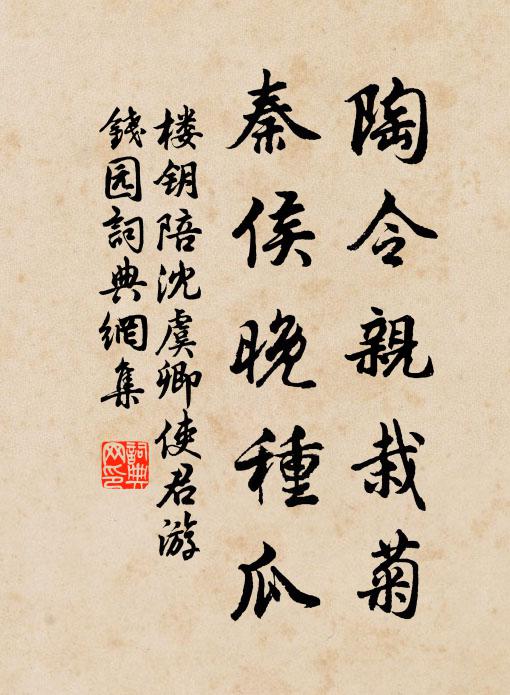 陶令親栽菊
秦侯晚種瓜
楼钥陪沈虞卿使君游
錢园詞典網集
詞典
网印